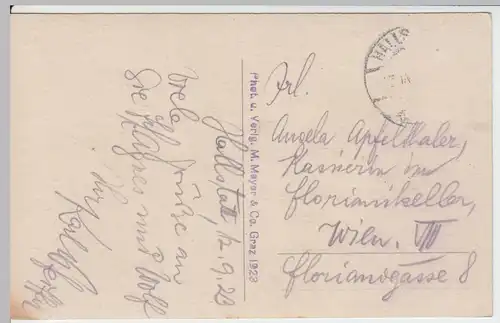 Hallstatt 12.9.23
viele Grüße an
Sie
und Wolf
Ihr Karl
Phot. u. Verlg. M. Mayer & Co. Graz 1923
HALLS
Frl.
Angela Apfelthaler,
Kassierin im
Florianikeller,
Wien. VIII
Florianigasse 8